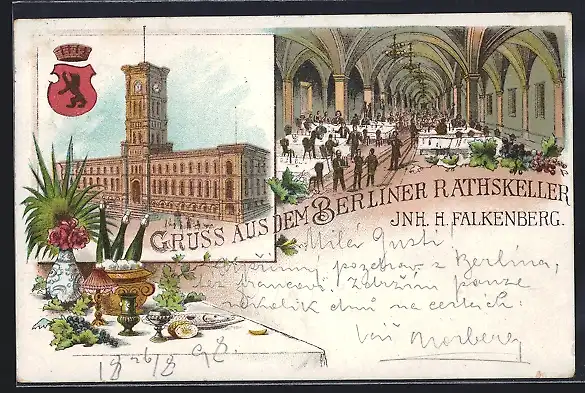 GRUSS AUS DEM BERLINER RATHSKELLER
JNH. H. FALKENBERG.
Milá Gusti!
pozdrav z Berlína,
Zdržím pouze
několik dnů na cestách.
Váš
18 26/8 98.